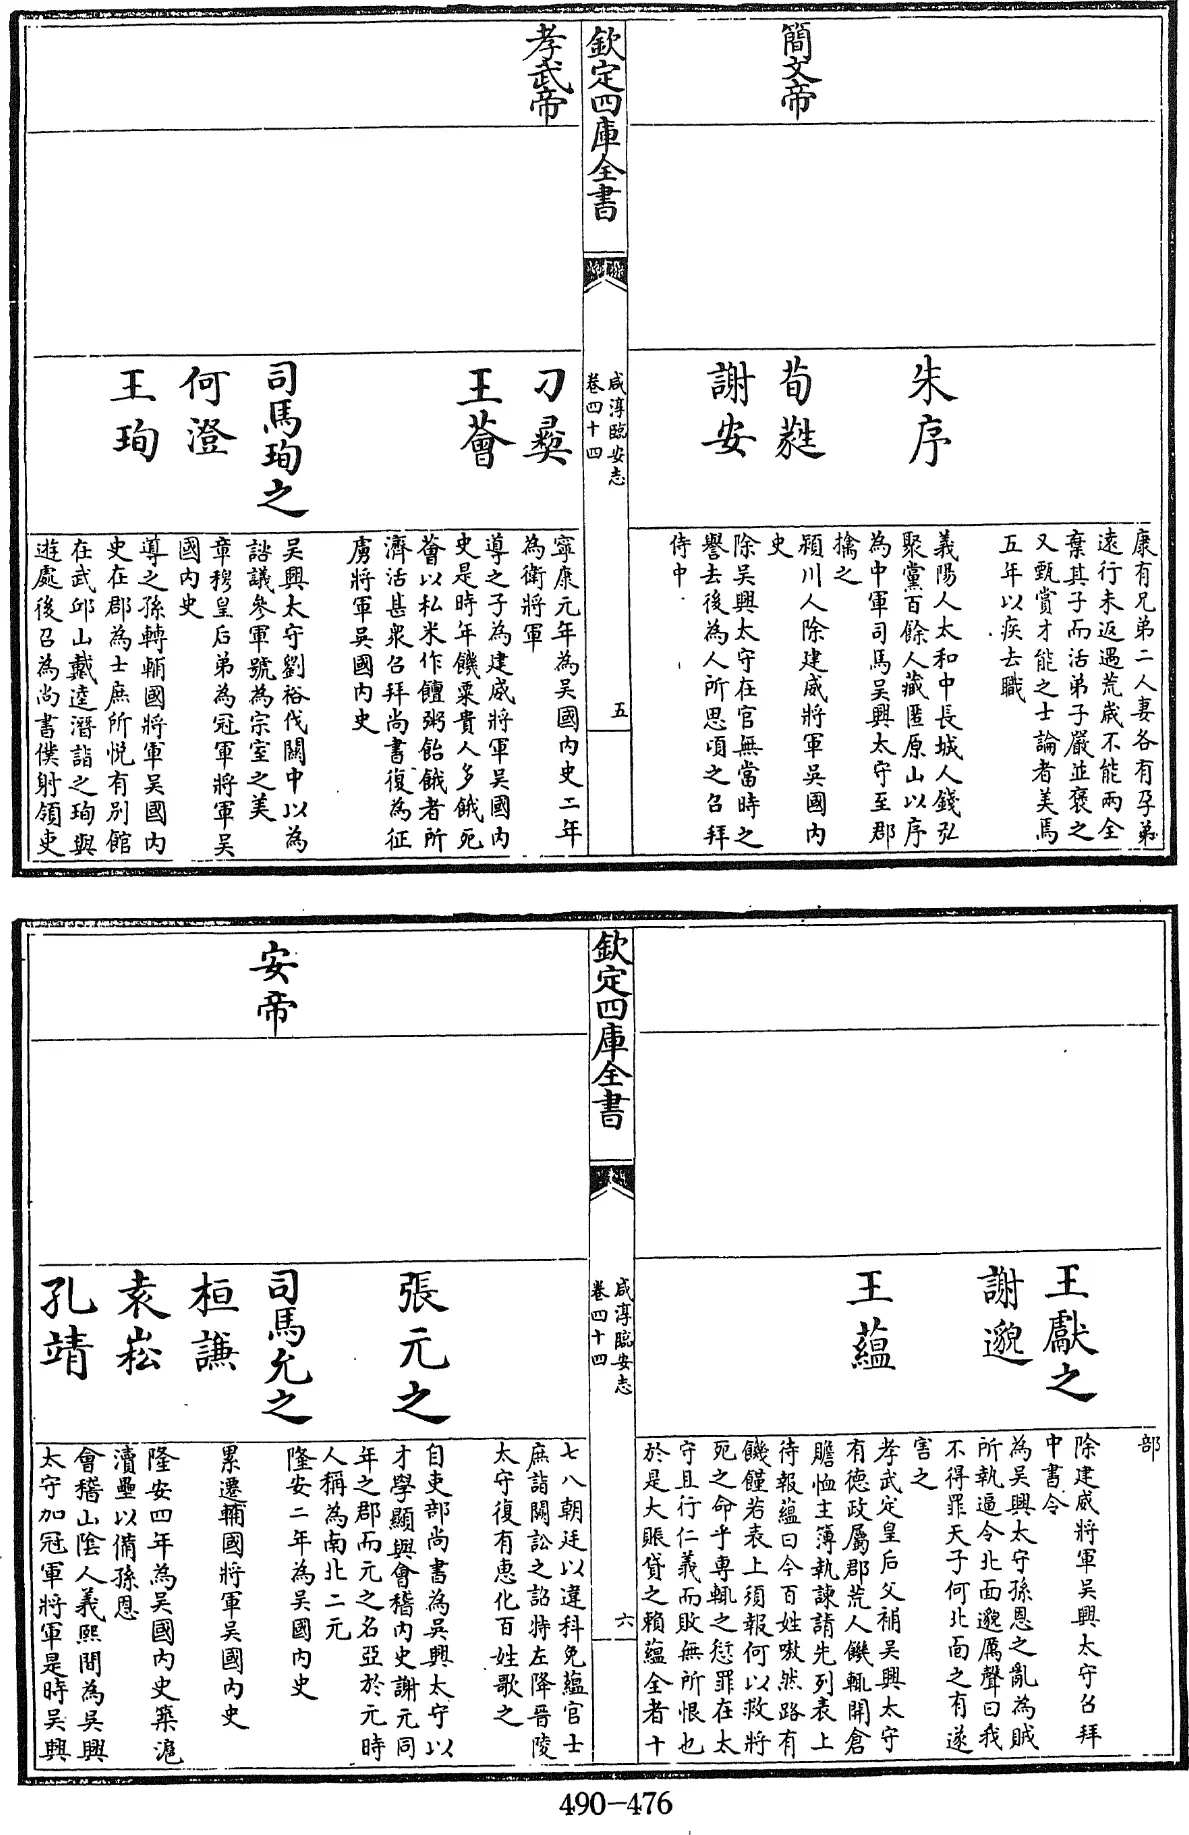 簡文帝
朱序
荀蕤
謝安
康有兄弟二人妻各有孕弟
遠行未返遇荒歲不能兩全
棄其子而活弟子嚴並褒之
又甄賞才能之士論者美焉
五年以疾去職
義陽人太和中長城人錢弘
聚黨百餘人藏匿原山以序
為中軍司馬吳興太守至郡
擒之
潁川人除建威將軍吳國內
史
除吳興太守在官無當時之
譽去後為人所思頃之召拜
侍中
欽定四庫全書
咸淳臨安志
卷四十四
五
孝武帝
刁彝
王薈
司馬珣之
何澄
王珣
寧康元年為吳國內史二年
為衛將軍
導之子為建威將軍吳國內
史是時年饑粟貴人多餓死
薈以私米作饘粥飴餓者所
濟活甚衆召拜尚書復為征
虜將軍吳國內史
吳興太守劉裕伐關中以為
諮議參軍號為宗室之美
章穆皇后弟為冠軍將軍吳
國內史
導之孫轉輔國將軍吳國內
史在郡為士庶所悅有別館
在武邱山戴逵潛詣之珣與
遊處後召為尚書僕射領吏
王獻之
謝邈
王蘊
部
除建威將軍吳興太守召拜
中書令
為吳興太守孫恩之亂為賊
所執逼令北面邈厲聲曰我
不得罪天子何北面之有遂
害之
孝武定皇后父補吳興太守
有德政屬郡荒人饑輒開倉
贍恤主簿執諫請先列表上
待報蘊曰今百姓嗷然路有
饑饉若表上須報何以救將
死之命乎專輒之愆罪在太
守且行仁義而敗無所恨也
於是大賑貸之賴蘊全者十
欽定四庫全書
咸淳臨安志
卷四十四
六
安帝
張元之
司馬允之
桓謙
袁崧
孔靖
七八朝廷以違科免蘊官士
庶詣闕訟之詔特左降晉陵
太守復有惠化百姓歌之
自吏部尚書為吳興太守以
才學顯與會稽內史謝元同
年之郡而元之名亞於元時
人稱為南北二元
隆安二年為吳國內史
累遷輔國將軍吳國內史
隆安四年為吳國內史築滬
瀆壘以備孫恩
會稽山陰人義熙間為吳興
太守加冠軍將軍是時吳興
490-476